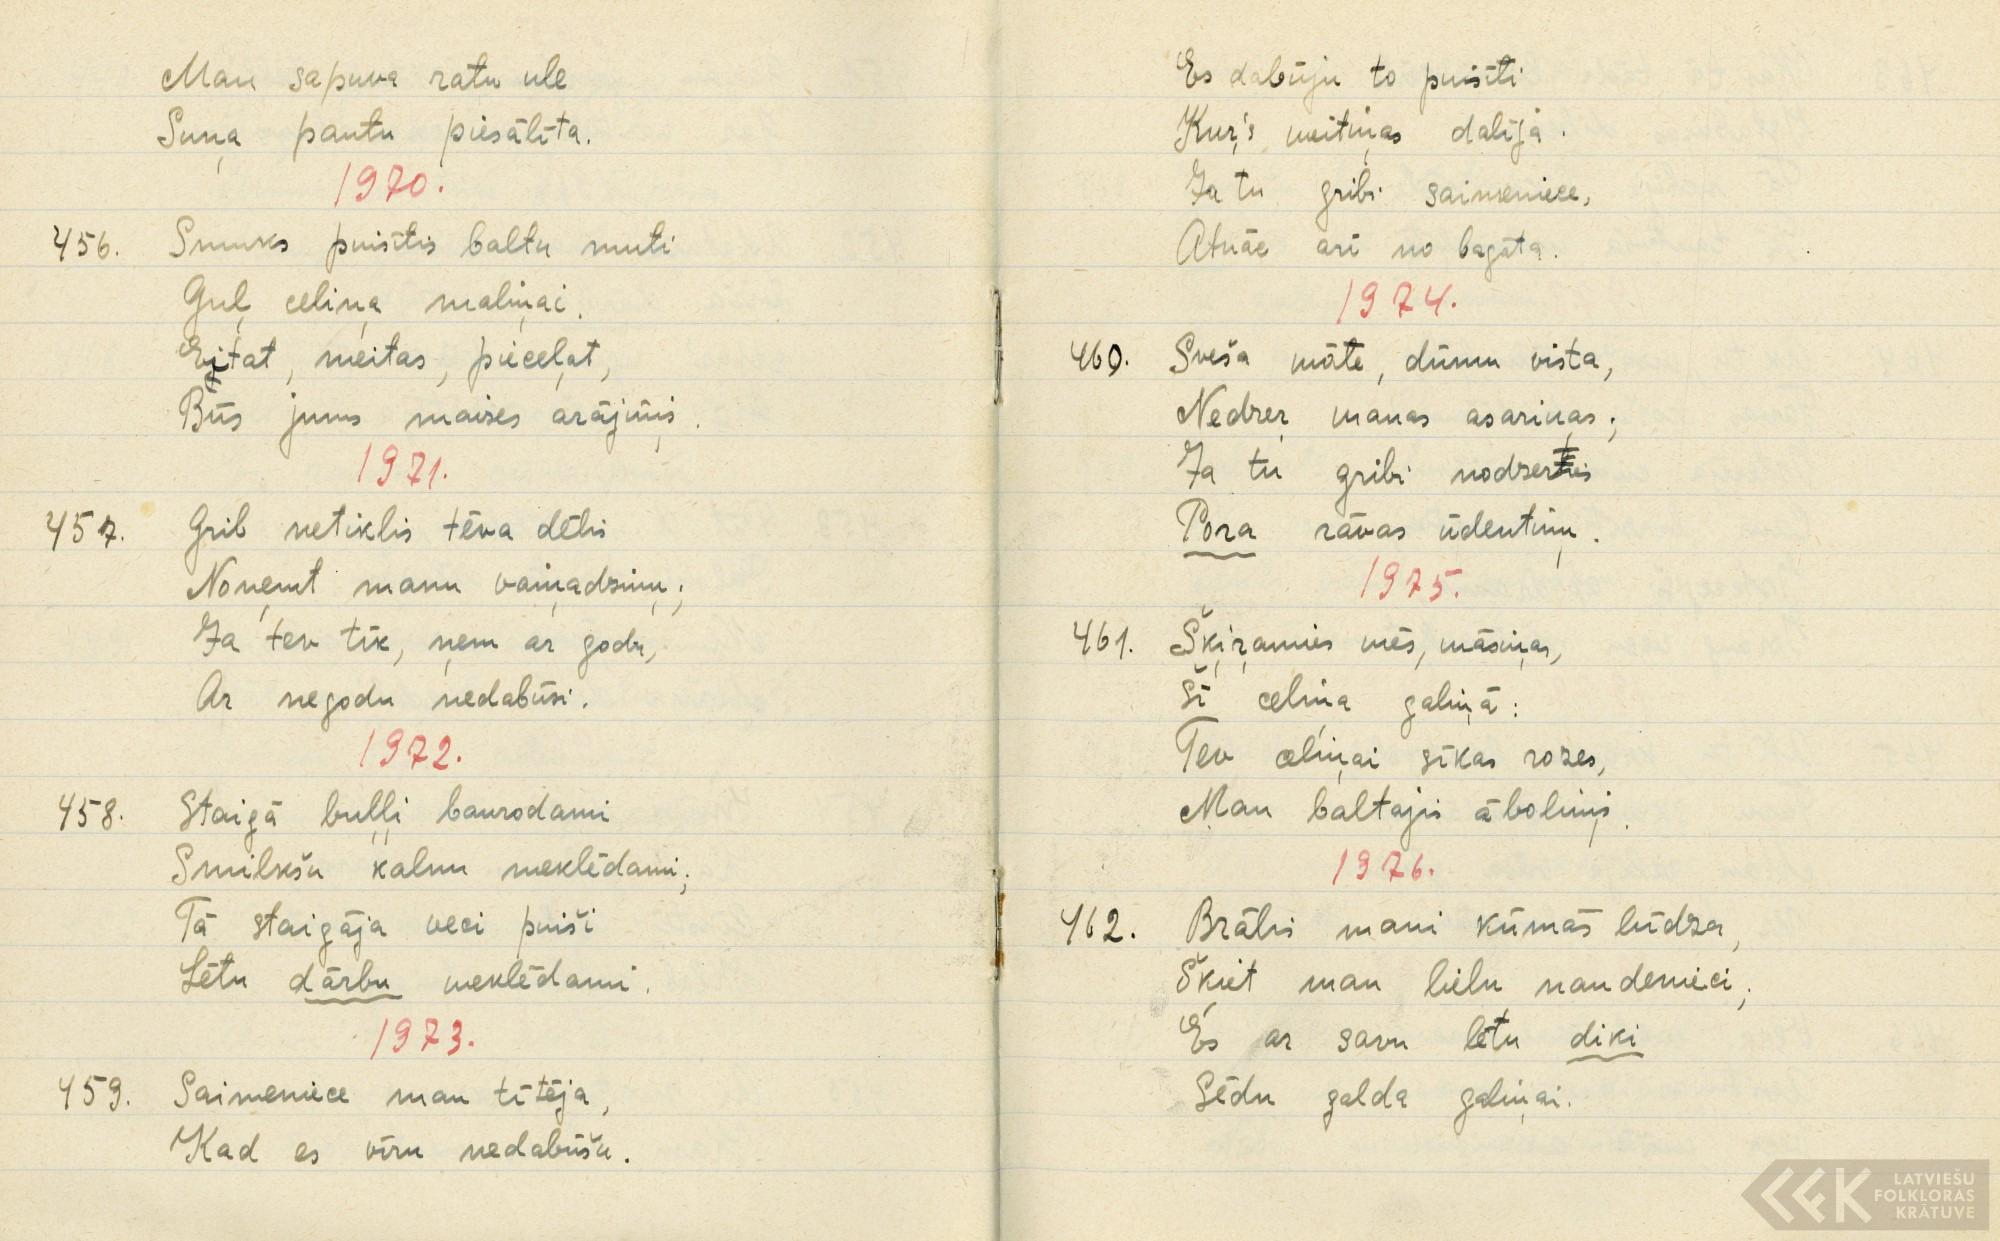 Man sapuva ratu ule
Suņa pautu piesālīta.
1970.
456. Smuks puisītis baltu muti
Guļ celiņa maliņai.
Ejtat, meitas, pieceļat,
Būs jums maizes arājiņis.
1971.
457. Grib netiklis tēva dēlis
Noņemt manu vaiņadziņu;
Ja tev tīk, ņem ar godu,
Ar negodu nedabūsi.
1972.
458. Staigā buļļi baurodami
Smilkšu kalnu meklēdami;
Tā staigāja veci puiši
Lētu dārbu meklēdami.
1973.
459. Saimeniece man tītēja,
Kad es vīru nedabūšu.
Es dabūju to puisīti
Kuŗ's meitiņas dalīja.
Ja tu gribi saimeniece,
Atnāc arī no bagāta.
1974.
460. Sveša māte, dūmu vista,
Nedzer manas asariņas;
Ja tu gribi nodzerties
Pora rāvas ūdentiņu.
1975.
461. Šķiŗamies mēs, māsiņas,
Šī celiņa galiņā:
Tev celiņai sīkas rozes,
Man baltajis āboliņis.
1976.
462. Brālis mani kūmās lūdza,
Šķiet man lielu naudenieci;
Es ar savu lētu diķi
Sēdu galda galiņai.
LATVIEŠU
FOLKLORAS
KRĀTUVE